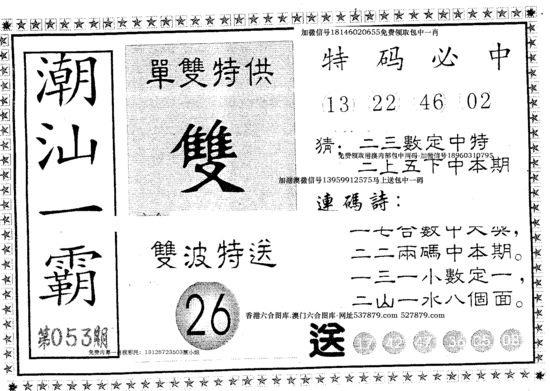 加微信号18146020655免费领取包中一肖
潮汕一霸
第053期
單雙特供
雙
特码必中
13 22 46 02
猜：二三數定中特
免费领取港澳内部包中两码·加微信号18960310795
二上五下中本期
加港澳微信号13959912575马上送包中一码
連碼詩：
一七合數中大獎，
二二兩碼中本期。
一三一小數定一，
二山一水八個面。
雙波特送
26
香港六合图库.澳门六合图库·网址537879.com 527879.com
送 17 42 47 36 05 08